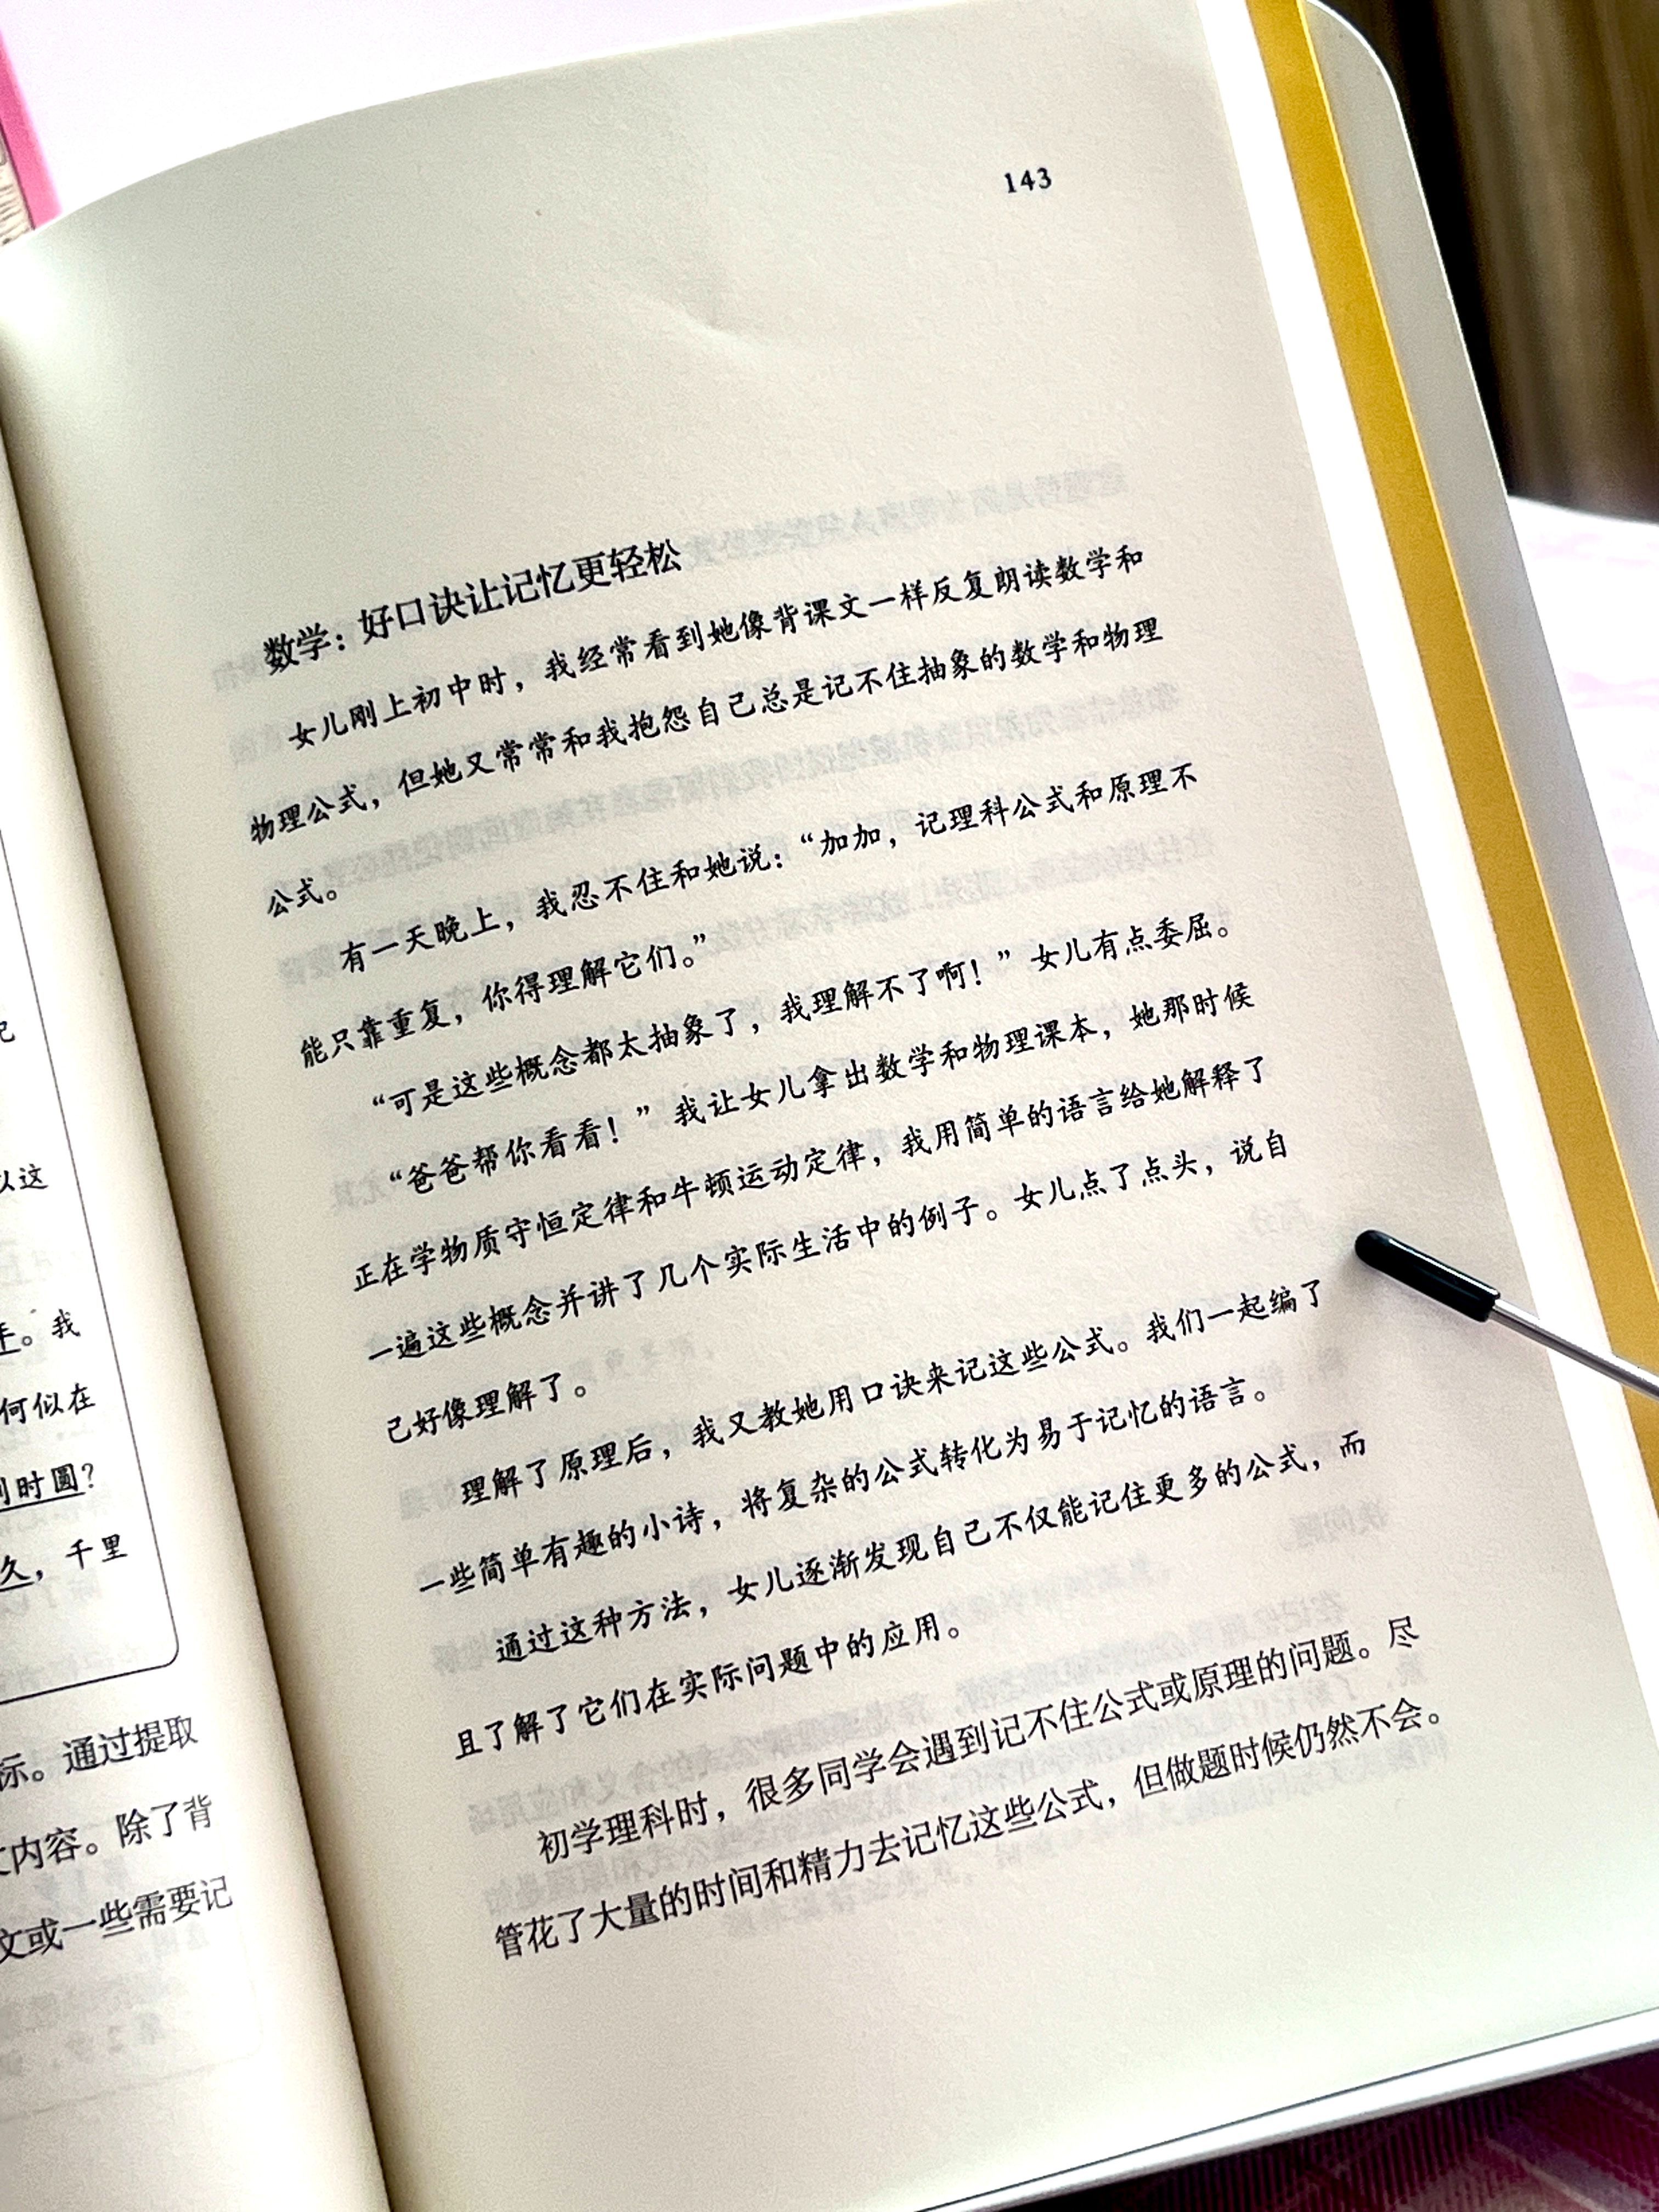 记
以这
年。我
何似在
别时圆？
久，千里
标。通过提取
文内容。除了背
文或一些需要记
143
数学：好口诀让记忆更轻松
女儿刚上初中时，我经常看到她像背课文一样反复朗读数学和
物理公式，但她又常常和我抱怨自己总是记不住抽象的数学和物理
公式。
有一天晚上，我忍不住和她说：“加加，记理科公式和原理不
能只靠重复，你得理解它们。”
“可是这些概念都太抽象了，我理解不了啊！”女儿有点委屈。
“爸爸帮你看看！”我让女儿拿出数学和物理课本，她那时候
正在学物质守恒定律和牛顿运动定律，我用简单的语言给她解释了
一遍这些概念并讲了几个实际生活中的例子。女儿点了点头，说自
己好像理解了。
理解了原理后，我又教她用口诀来记这些公式。我们一起编了
一些简单有趣的小诗，将复杂的公式转化为易于记忆的语言。
通过这种方法，女儿逐渐发现自己不仅能记住更多的公式，而
且了解了它们在实际问题中的应用。
初学理科时，很多同学会遇到记不住公式或原理的问题。尽
管花了大量的时间和精力去记忆这些公式，但做题时候仍然不会。